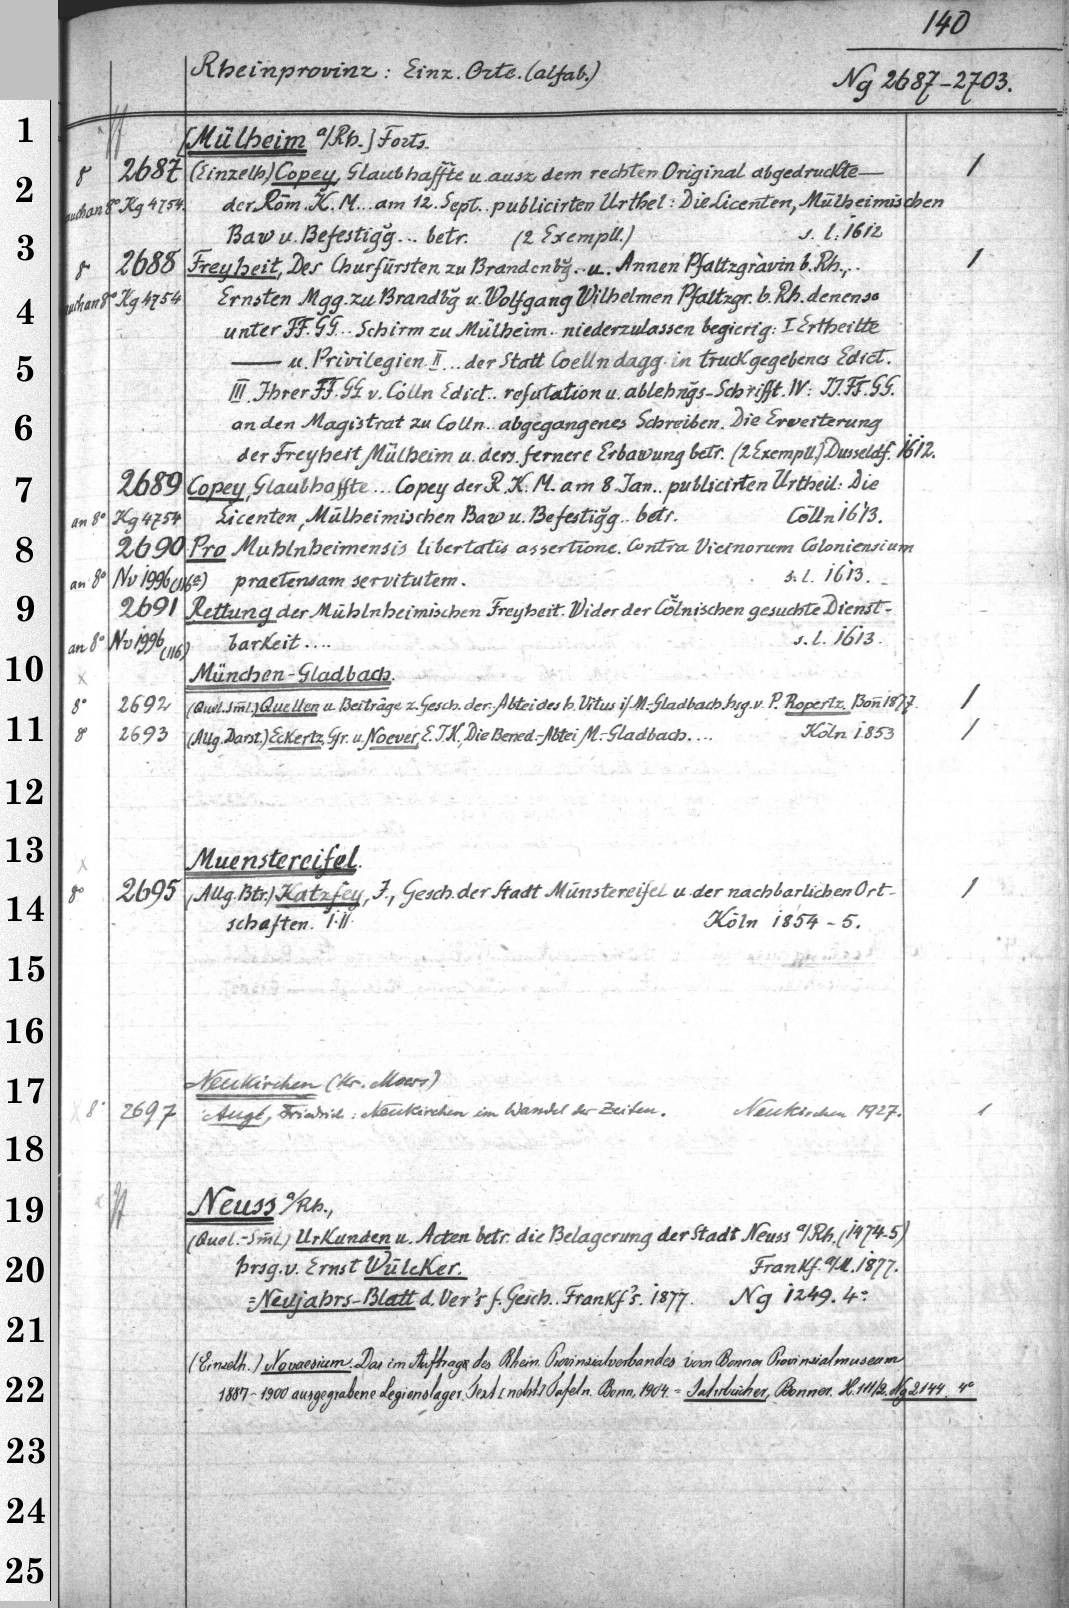 140
Rheinprovinz: Einz. Orte. (alfab.)
Ng 2687–2703.
1
[Mülheim a/Rh.] Forts.
8° 2687 (Einzelh.) Copey, Glaubhaffte u. ausz dem rechten Original abgedruckte — 1
2
auch an 8° Kg 4754. der Röm. K. M... am 12. Sept.. publicirten Urthel: Die Licenten, Mülheimischen
Baw u. Befestigg... betr. (2 Exempll.) s. l. 1612
3
8° 2688 Freyheit, Des Churfürsten zu Brandenbg.. u. Annen Pfaltzgrävin b. Rh.,.. 1
auch an 8° Kg 4754 Ernsten Mgg. zu Brandbg u. Wolfgang Wilhelmen Pfaltzgr. b. Rh. denen so
4
unter FF. GG... Schirm zu Mülheim.. niederzulassen begierig: I Ertheilte
5
— u. Privilegien. II ... der Statt Coelln dagg. in truck gegebenes Edict.
III. Ihrer FF. GG v. Cölln Edict.. refutation u. ablehngs-Schrifft. IV: II. FF. GG.
6
an den Magistrat zu Colln.. abgegangenes Schreiben. Die Erweiterung
der Freyheit Mülheim u. ders. fernere Erbawung betr. (2 Exempll.) Dusseldf. 1612.
7
2689 Copey, Glaubhaffte ... Copey der R. K. M. am 8. Jan.. publicirten Urtheil: Die
an 8° Kg 4754 Licenten, Mülheimischen Baw u. Befestigg.. betr. Cölln 1613.
8
2690 Pro Muhlnheimensis libertatis assertione. Contra Vicinorum Coloniensium
an 8° Nv 1996 (116a) praetensam servitutem. s. l. 1613.
9
2691 Rettung der Mühlnheimischen Freyheit. Wider der Cölnischen gesuchte Dienst-
an 8° Nv 1996 (116) barkeit .... s. l. 1613.
10
München-Gladbach.
8° 2692 (Quel. Sml.) Quellen u. Beiträge z. Gesch. der Abtei des h. Vitus i/ M.-Gladbach. hrsg. v. P. Ropertz, Bonn 1877. 1
11
8° 2693 (Allg. Darst.) Eckertz, Gfr. u. Noever, E. J. K., Die Bened.-Abtei M.-Gladbach.... Köln 1853 1
12
13
Muenstereifel.
8° 2695 (Allg. Btr.) Katzfey, J., Gesch. der Stadt Münstereifel u. der nachbarlichen Ort- 1
14
schaften. I. II Köln 1854–5.
15
16
17
Neukirchen (Kr. Moers)
8° 2697 Augé, Friedrich: Neukirchen im Wandel der Zeiten. Neukirchen 1927. 1
18
19
Neuss a/Rh.,
(Quel.-Sml.) Urkunden u. Acten betr. die Belagerung der Stadt Neuss a/Rh. (1474-5)
20
hrsg. v. Ernst Wülcker. Frankf. a/M. 1877.
=Neujahrs-Blatt d. Ver's f. Gesch.. Frankf's. 1877. Ng 1249. 4°
21
(Einzelh.) Novaesium. Das im Auftrage des Rhein. Provinzialverbandes vom Bonner Provinzialmuseum
22
1887–1900 ausgegrabene Legionslager. Text [nebst] Tafeln. Bonn, 1904. = Jahrbücher, Bonner. H. 111/2. Ng 2144. 4°
23
24
25